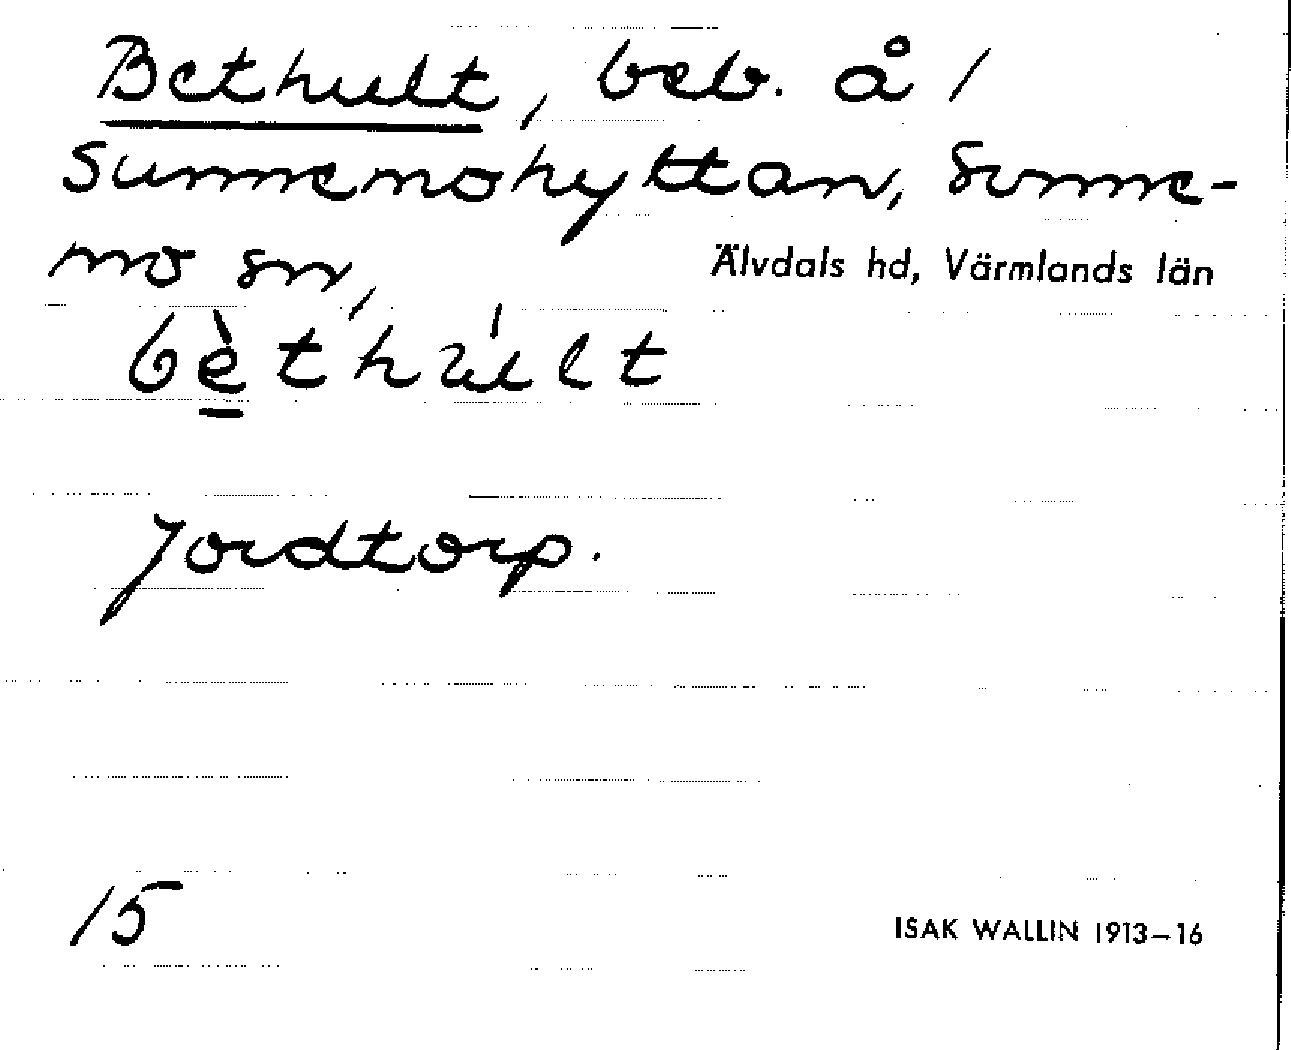 Bethult, beb. å /
Sunnemohyttan, Sunne-
mo sn, Älvdals hd, Värmlands län
bè̱thúlt
Jordtorp.
15
ISAK WALLIN 1913–16